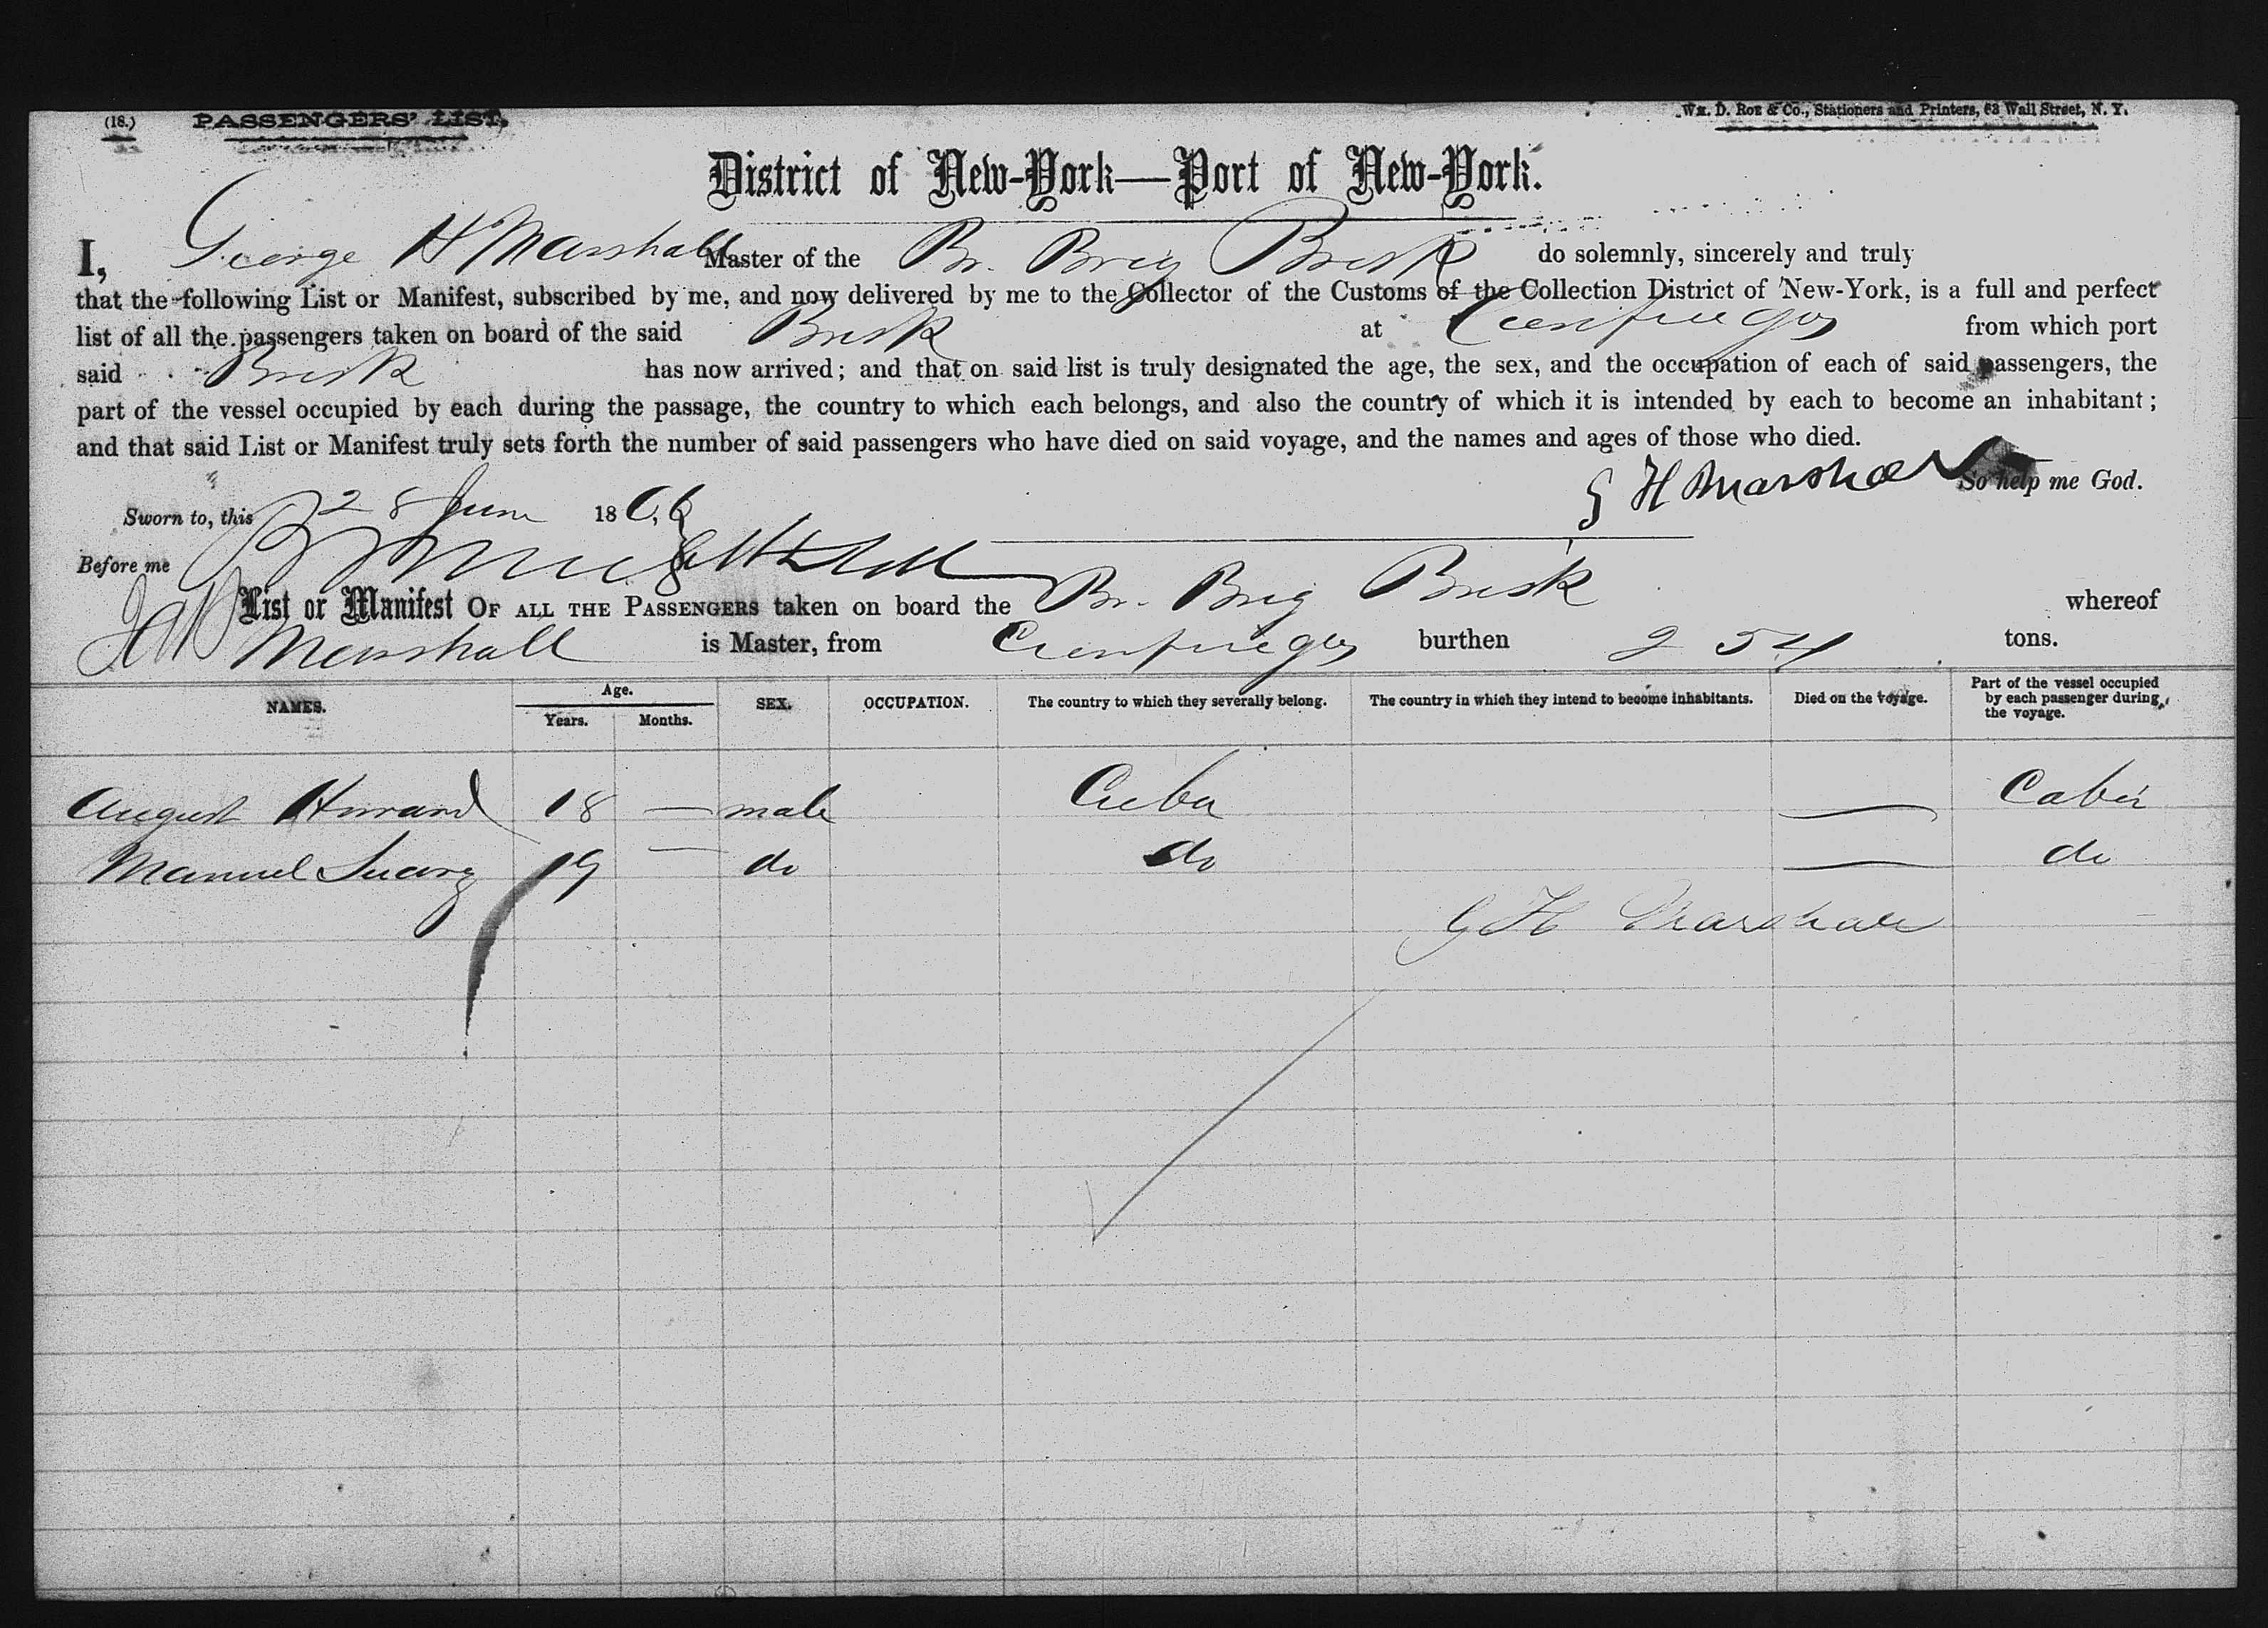 (18.) PASSENGERS' LIST. Wm. D. Roe & Co., Stationers and Printers, 63 Wall Street, N. Y.
District of New-York—Port of New-York.
I, George H Marshall Master of the Br. Brig Brisk do solemnly, sincerely and truly
that the following List or Manifest, subscribed by me, and now delivered by me to the Collector of the Customs of the Collection District of New-York, is a full and perfect
list of all the passengers taken on board of the said Brisk at Cienfuegos from which port
said Brisk has now arrived; and that on said list is truly designated the age, the sex, and the occupation of each of said passengers, the
part of the vessel occupied by each during the passage, the country to which each belongs, and also the country of which it is intended by each to become an inhabitant;
and that said List or Manifest truly sets forth the number of said passengers who have died on said voyage, and the names and ages of those who died.
G H Marshall So help me God.
Sworn to, this 28 June 1866
Before me
List or Manifest OF ALL THE PASSENGERS taken on board the Br. Brig Brisk whereof
Marshall is Master, from Cienfuegos burthen 254 tons.
NAMES. Age. Years. Months. SEX. OCCUPATION. The country to which they severally belong. The country in which they intend to become inhabitants. Died on the voyage. Part of the vessel occupied by each passenger during the voyage.
August 18 — male Cuba — Cabin
Manuel Suarez 19 — do do — do
G H Marshall